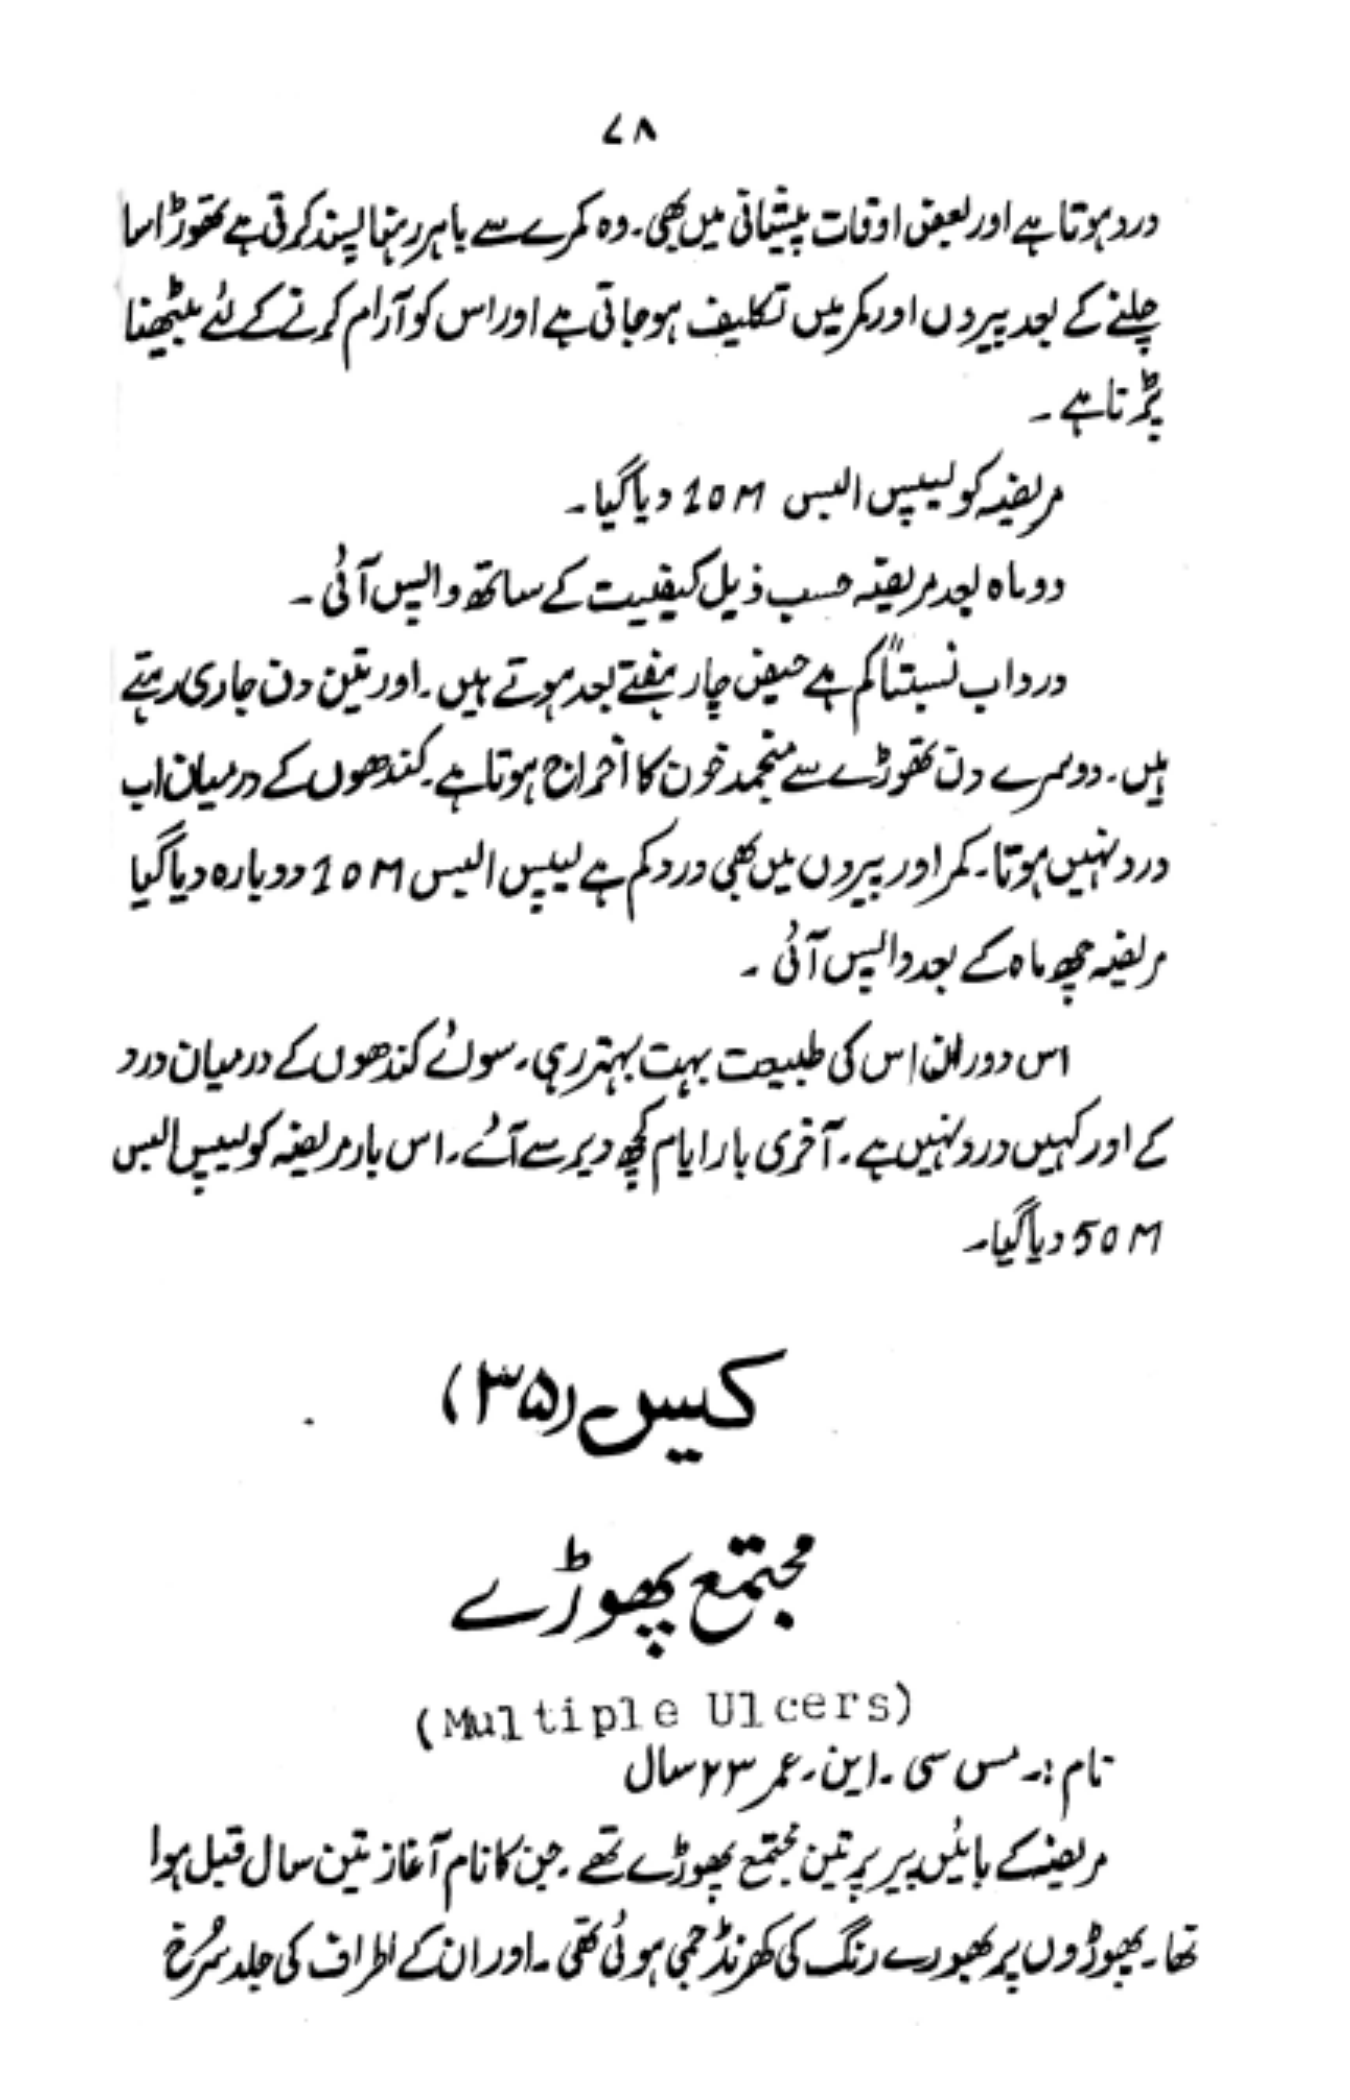 ۷۸
درد ہوتا ہے اور بعض اوقات پیشانی میں بھی۔ وہ کمرے سے باہر رہنا پسند کرتی ہے تھوڑا سا
چلنے کے بعد پیروں اور کمر میں تکلیف ہو جاتی ہے اور اس کو آرام کرنے کے لئے بیٹھنا
پڑتا ہے۔
مریضہ کو لیپس البس 10M دیا گیا۔
دو ماہ بعد مریضہ حسب ذیل کیفیت کے ساتھ واپس آئی۔
درد اب نسبتاً کم ہے حیض چار ہفتے بعد ہوتے ہیں۔ اور تین دن جاری رہتے
ہیں۔ دوسرے دن تھوڑے سے منجمد خون کا اخراج ہوتا ہے۔ کندھوں کے درمیان اب
درد نہیں ہوتا۔ کمر اور پیروں میں بھی درد کم ہے لیپس البس 10M دوبارہ دیا گیا
مریضہ چھ ماہ کے بعد واپس آئی ۔
اس دوران اس کی طبیعت بہت بہتر رہی۔ سوائے کندھوں کے درمیان درد
کے اور کہیں درد نہیں ہے۔ آخری بار ایام کچھ دیر سے آئے۔ اس بار مریضہ کو لیپس البس
50M دیا گیا۔
کیس (۳۵)
مجتمع پھوڑے
(Multiple Ulcers)
نام :۔ مس سی ۔ این۔ عمر ۲۳ سال
مریضہ کے بائیں پیر پر تین مجتمع پھوڑے تھے ۔ جن کا نام آغاز تین سال قبل ہوا
تھا۔ پھوڑوں پر بھورے رنگ کی کھرنڈ جمی ہوئی تھی ۔ اور ان کے اطراف کی جلد سُرخ